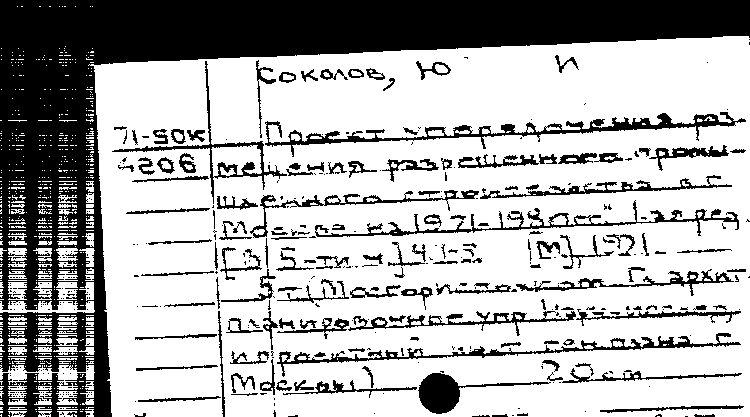 Соколов, Ю И
71-50к Проект упорядочения раз-
4206 мещения разрешенного промы-
шленного строительства в г
Москве на 1971-1980гг. 1-я ред.
[В 5-ти ч.] Ч. 1-5. [М], 1971.
5 т. (Мосгорисполком Гл. архит.
планировочное упр Науч-исслед
и проектный ин-т генплана г
Москвы) 20 см